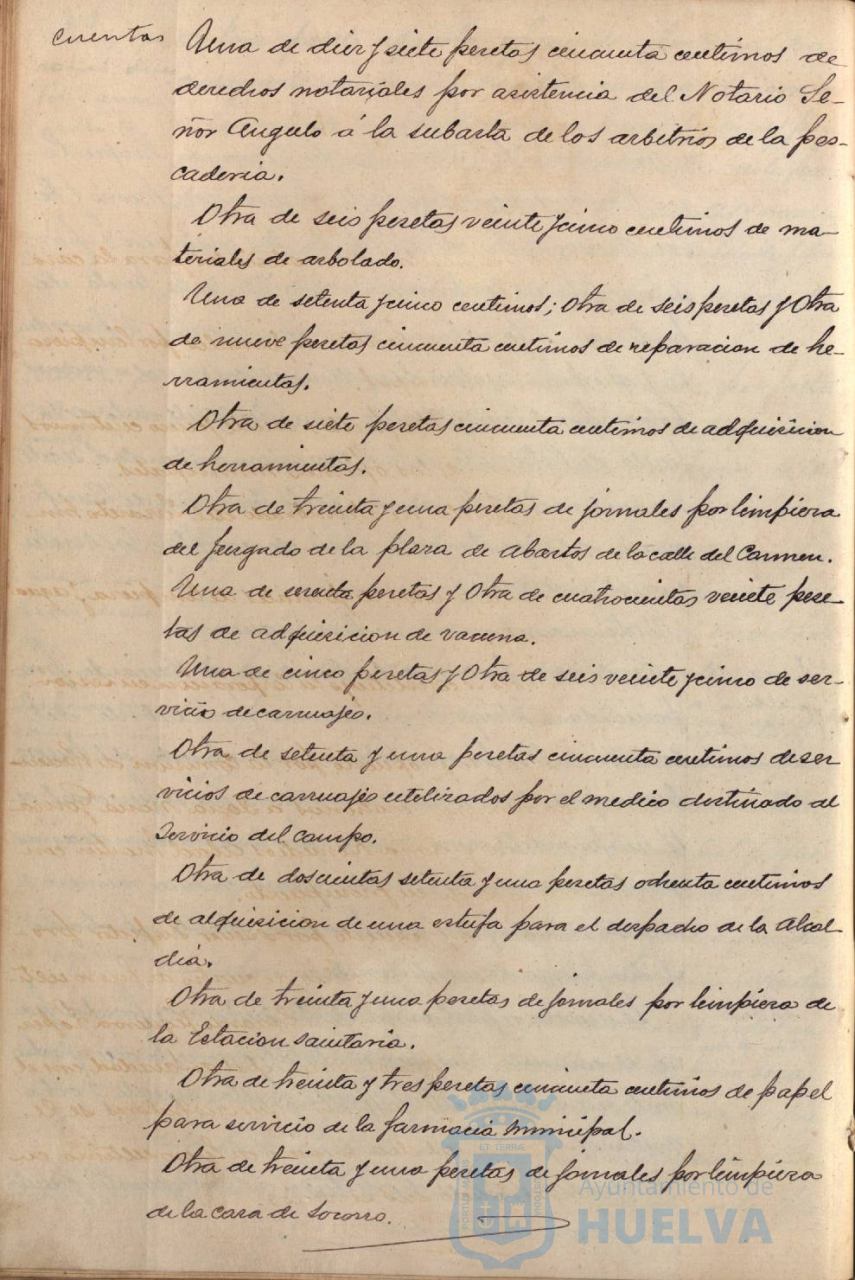 cuentas
Una de diez y siete pesetas cincuenta centimos de
derechos notariales por asistencia del Notario Se-
ñor Angulo á la subasta de los arbitrios de la pes-
caderia.
Otra de seis pesetas veinte y cinco centimos de ma-
teriales de arbolado.
Una de setenta y cinco centimos; Otra de seis pesetas y Otra
de nueve pesetas cincuenta centimos de reparacion de he-
rramientas.
Otra de siete pesetas cincuenta centimos de adquisicion
de herramientas.
Otra de treinta y una pesetas de jornales por limpieza
del Juzgado de la plaza de Abastos de la calle del Carmen.
Una de pesetas y Otra de cuatrocientas veinte pese-
tas de adquisicion de vacuna.
Una de cinco pesetas y Otra de seis veinte y cinco de ser-
vicio de carruajes.
Otra de setenta y una pesetas cincuenta centimos de ser
vicios de carruajes utilizados por el medico destinado al
Servicio del Campo.
Otra de doscientas setenta y una pesetas ochenta centimos
de adquisicion de una estufa para el despacho de la Alcal-
dia.
Otra de treinta y una pesetas de jornales por limpieza de
la Estacion sanitaria.
Otra de treinta y tres pesetas cincuenta centimos de papel
para servicio de la farmacia Municipal.
Otra de treinta y una pesetas de jornales por limpieza
de la casa de Socorro.
Ayuntamiento de
HUELVA